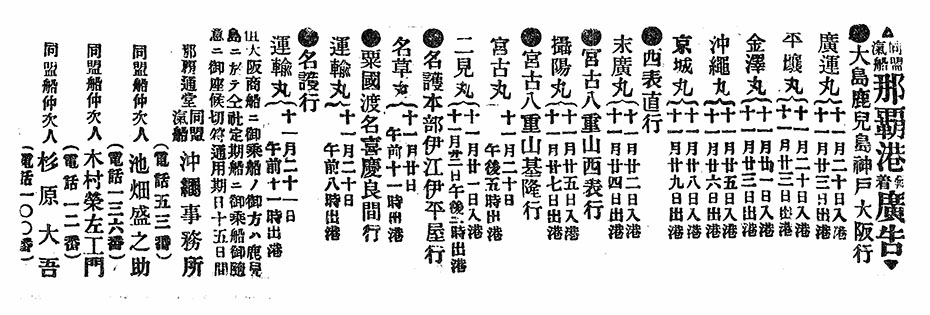 ▲同盟汽船那覇港発着廣告▼
●大島鹿兒島神戸大阪行
廣運丸{十一月二十日入港
十一月廿三日出港
平壤丸{十一月二十日入港
十一月廿三日出港
金澤丸{十一月廿一日入港
十一月廿三日出港
沖繩丸{十一月廿五日入港
十一月廿六日出港
京城丸{十一月廿五日入港
十一月廿九日出港
●西表直行
末廣丸{十一月廿二日入港
十一月廿四日出港
●宮古八重山西表行
攝陽丸{十一月廿五日入港
十一月廿七日出港
●宮古八重山基隆行
宮古丸{十一月二十日
午後五時出港
二見丸{十一月廿一日入港
十一月廿二日午後二時出港
●名護本部伊江伊平屋行
名草丸{十一月廿日
午前十一時出港
●粟國渡名喜慶良間行
運輸丸{十一月二十日
午前八時出港
●名護行
運輸丸{十一月二十一日
午前十一時出港
但大阪商船ニ御乗船ノ御方ハ鹿兒
島ニ於テ仝社定期船ニ御乗船御隨
意ニ御座候切符通用期日十五日間
那覇通堂同盟汽船沖繩事務所
(電話五三番)
同盟船仲次人 池畑盛之助
(電話一三六番)
同盟船仲次人 木村榮左工門
(電話一二番)
同盟船仲次人 杉原大吾
(電話一〇〇番)